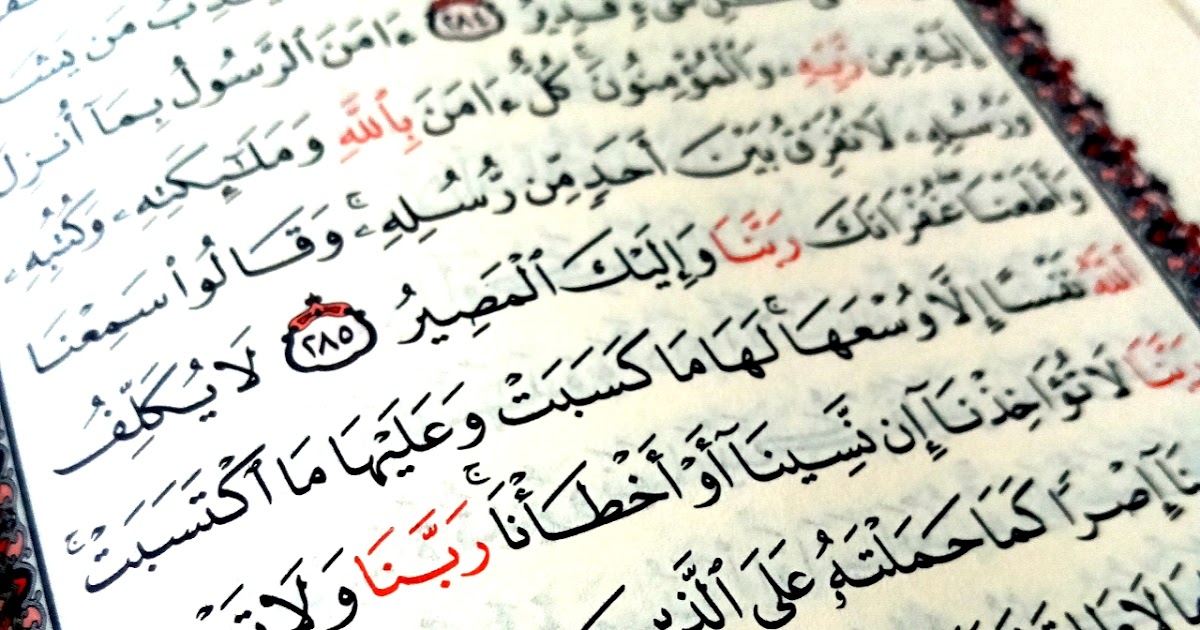 مَن يَشَ
قَدِيرٌ ٢٨٤ ءَامَنَ ٱلرَّسُولُ بِمَآ أُنزِلَ
إِلَيْهِ مِن رَّبِّهِۦ وَٱلْمُؤْمِنُونَ ۚ كُلٌّ ءَامَنَ بِٱللَّهِ وَمَلَٰٓئِكَتِهِۦ وَكُتُبِهِۦ
وَرُسُلِهِۦ لَا نُفَرِّقُ بَيْنَ أَحَدٍ مِّن رُّسُلِهِۦ ۚ وَقَالُوا۟ سَمِعْنَا
وَأَطَعْنَا ۖ غُفْرَانَكَ رَبَّنَا وَإِلَيْكَ ٱلْمَصِيرُ ٢٨٥ لَا يُكَلِّفُ
ٱللَّهُ نَفْسًا إِلَّا وُسْعَهَا ۚ لَهَا مَا كَسَبَتْ وَعَلَيْهَا مَا ٱكْتَسَبَتْ ۗ
رَبَّنَا لَا تُؤَاخِذْنَآ إِن نَّسِينَآ أَوْ أَخْطَأْنَا ۚ رَبَّنَا وَلَا تَ
نَآ إِصْرًا كَمَا حَمَلْتَهُۥ عَلَى ٱلَّذِينَ